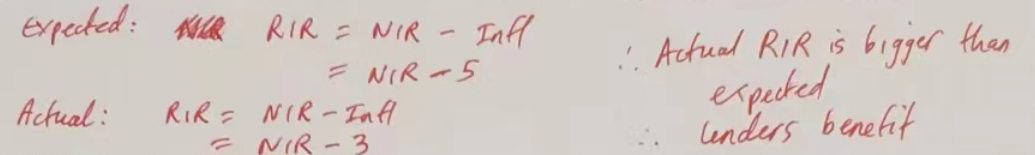 Expected: RIR = NIR - Infl
= NIR - 5
Actual: RIR = NIR - Infl
= NIR - 3
∴ Actual RIR is bigger than
expected
∴ lenders benefit